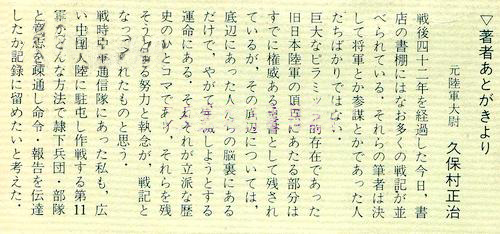 ▽著者あとがきより
元陸軍大尉 久保村正治
戦後四十二年を経過した今日、書
店の書棚にはなお多くの戦記が並
べられている。それらの筆者は決
して将軍とか参謀とかであった人
たちばかりではない。
巨大なピラミッド的存在であった
旧日本陸軍の頂点にあたる部分は
すでに権威ある書として残され
ているが、その底辺については、
底辺にあった人たちの脳裏にある
だけで、やがて消滅しようとする
運命にある。それぞれが立派な歴
史のひとコマであり、それらを残
そうとする努力と執念が、戦記と
なって現れたものと思う。
戦時中軍通信隊にあった私も、広
い中国大陸に駐屯し作戦する第11
軍がどんな方法で隷下兵団・部隊
と意志を疎通し命令、報告を伝達
したか記録に留めたいと考えた。